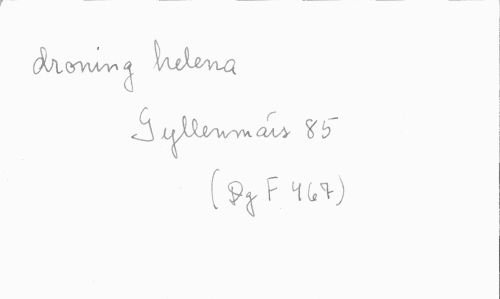 droning helena
Gyllenmärs 85
(Dg F 467)